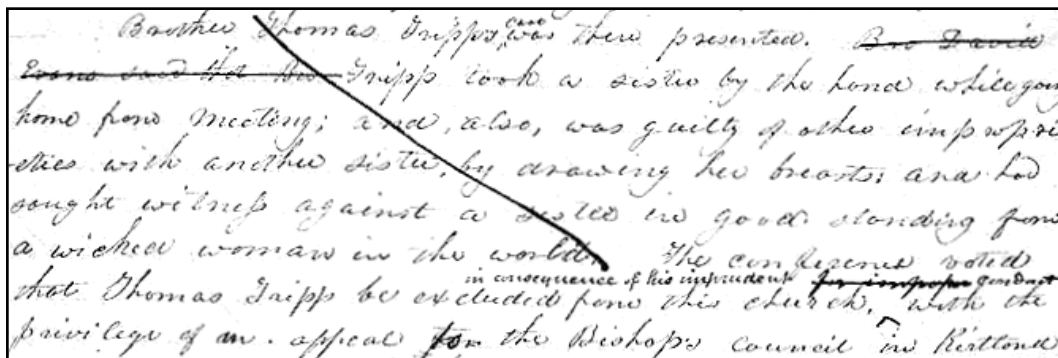 Brother Thomas Tripps case was then presented. Bro David
Evans said that Bro Tripp took a sister by the hand while going
home from meeting; and, also, was guilty of other impropri
-eties with another sister, by drawing her breasts; and had
sought witness against a sister in good standing from
a wicked woman in the world. The conference voted
in consequence of his imprudent for improper conduct
that Thomas Tripp be excluded from this church, with the
privilege of an appeal to the Bishops council in Kirtland